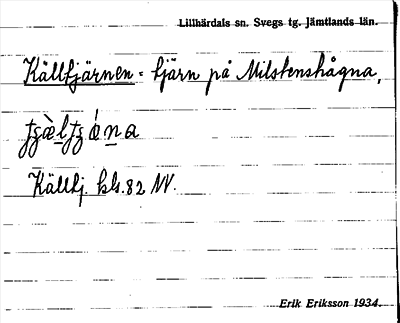 Lillhärdals sn. Svegs tg. Jämtlands län.
Källtjärnen = tjärn på Milstenshågna,
Källtj. bls. 82 NV.
Erik Eriksson 1934.